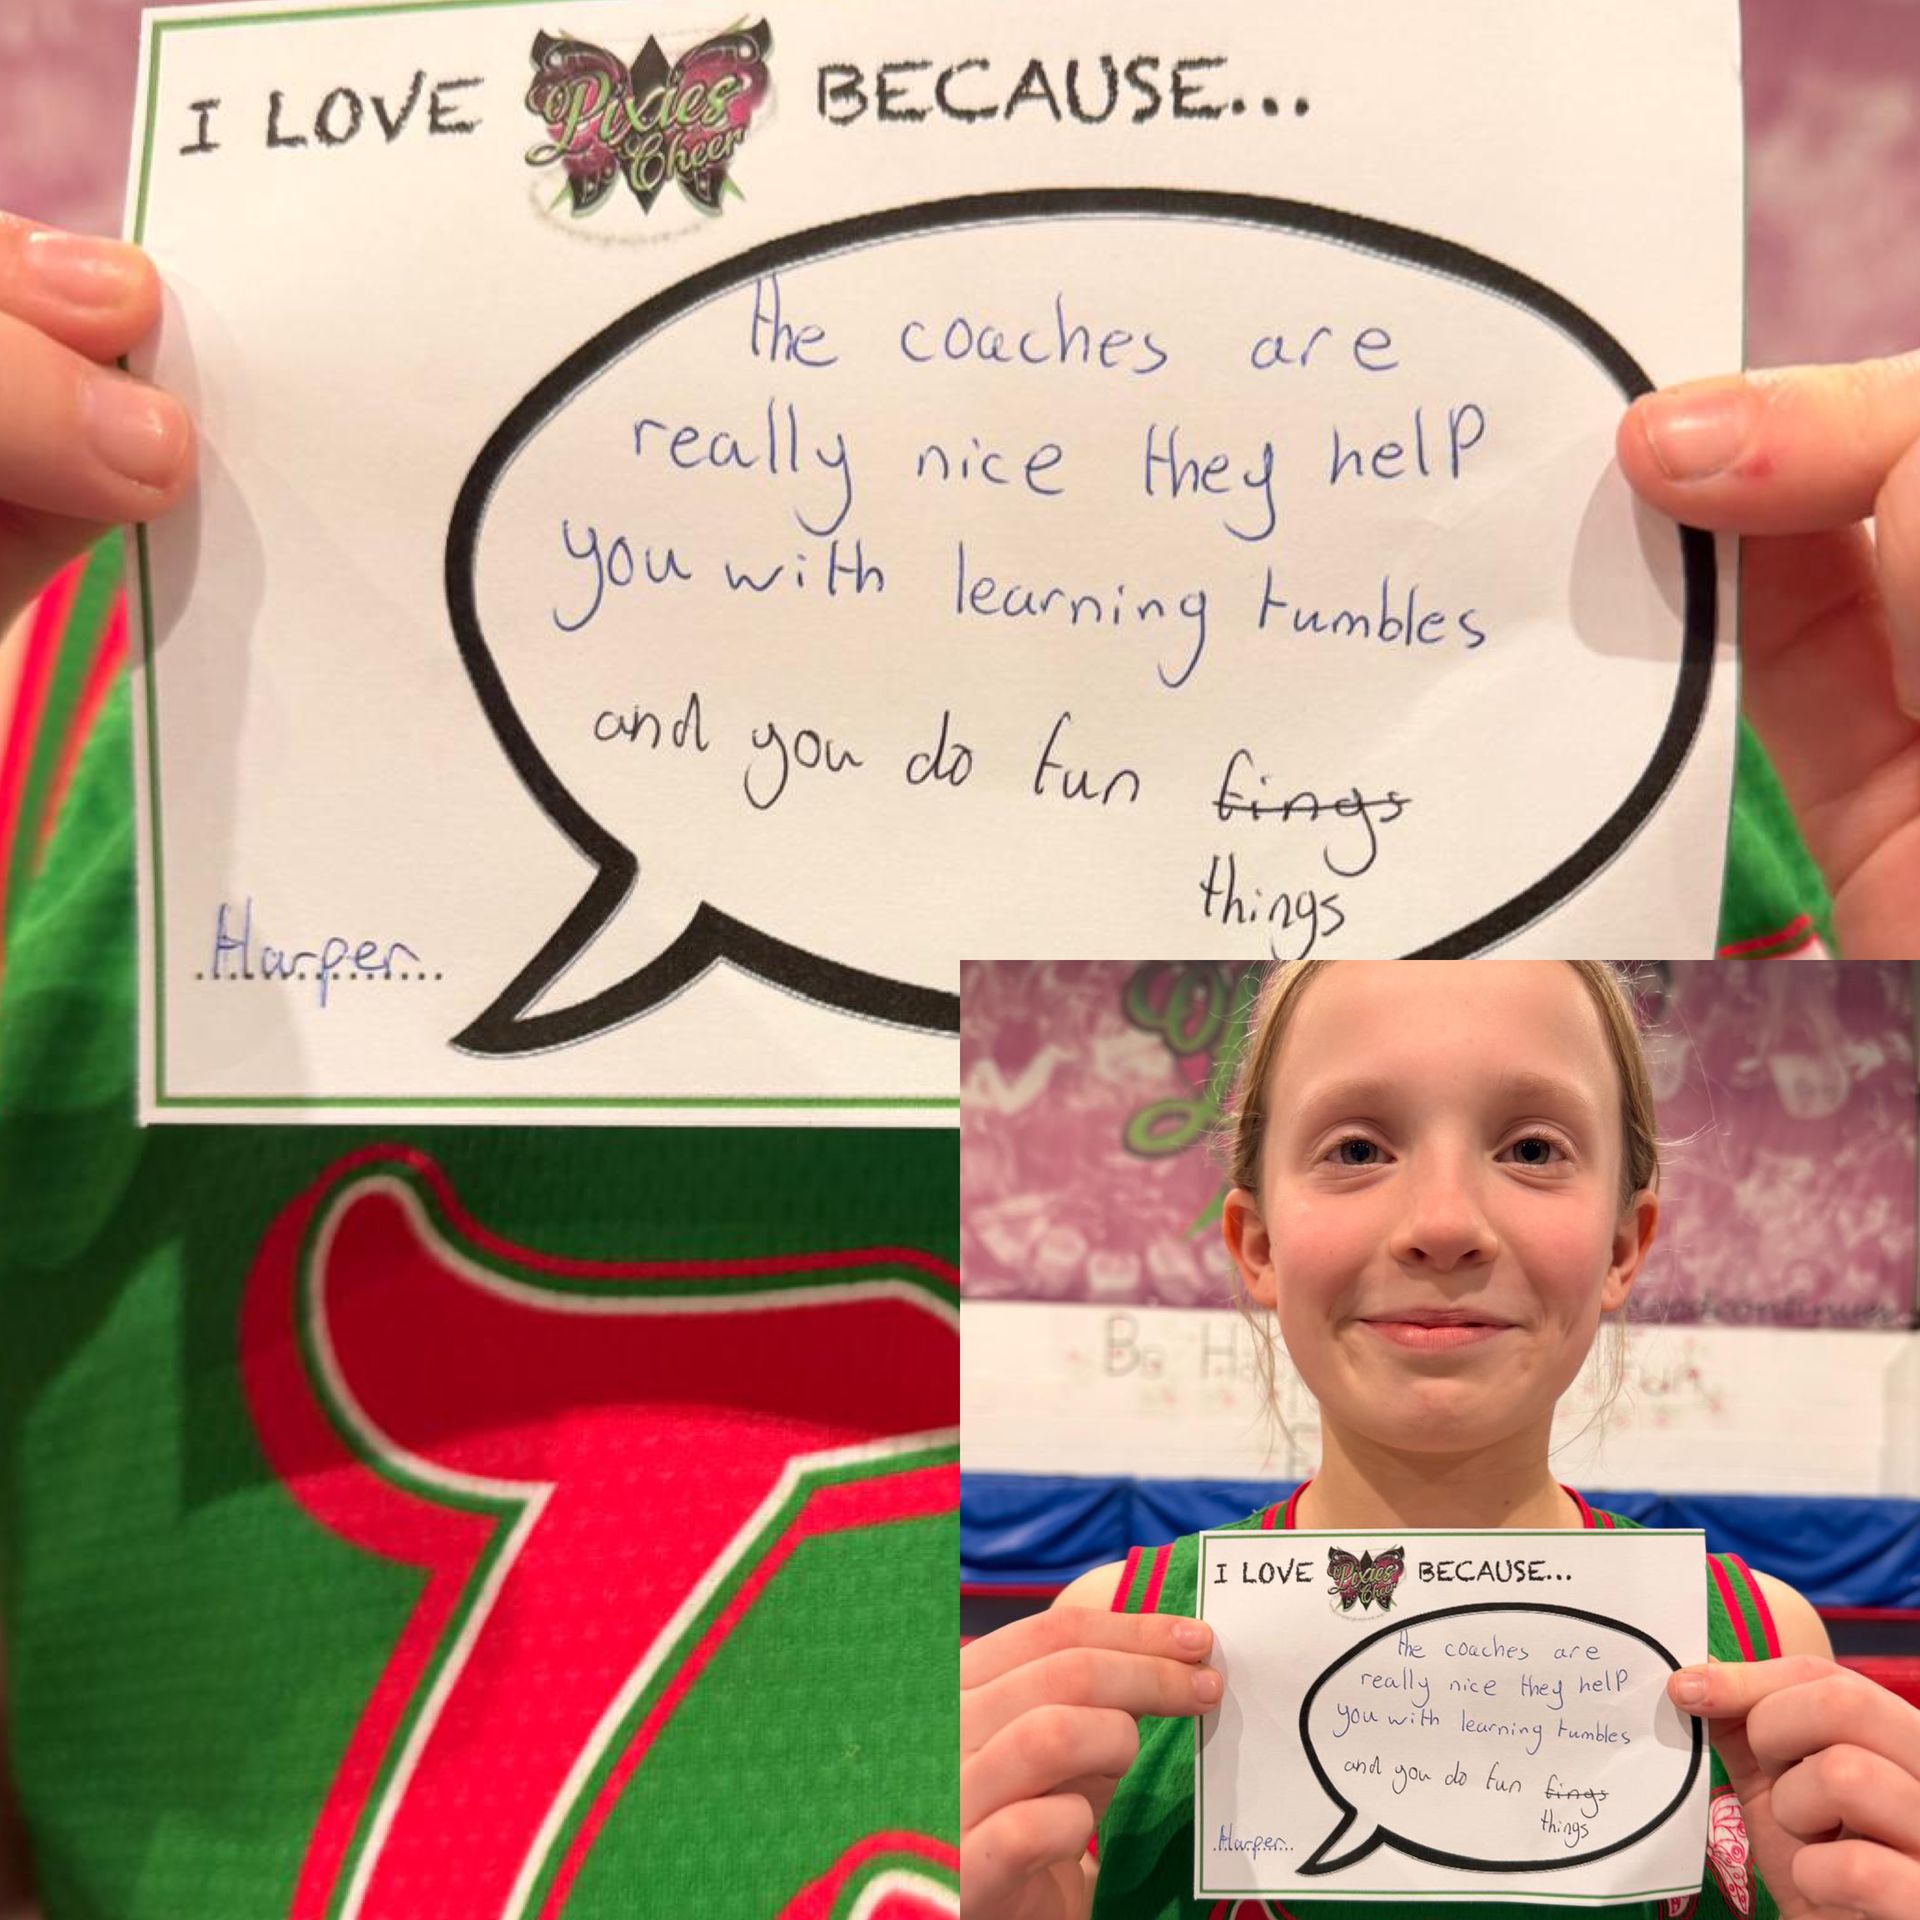 I LOVE Pixies Cheer BECAUSE...
the coaches are
really nice they help
you with learning tumbles
and you do fun fings
things
Harper
Be
I LOVE Pixies Cheer BECAUSE...
the coaches are
really nice they help
you with learning tumbles
and you do fun fings
things
Harper